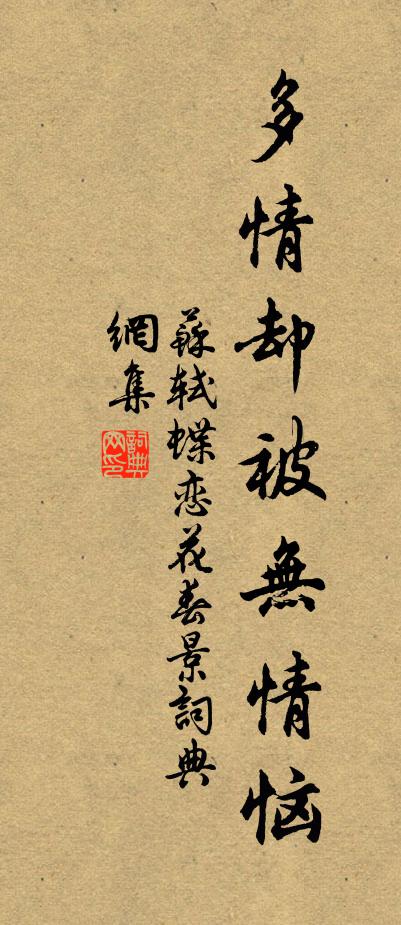 多情却被無情恼
蘇軾蝶恋花春景詞典
網集
詞典网印